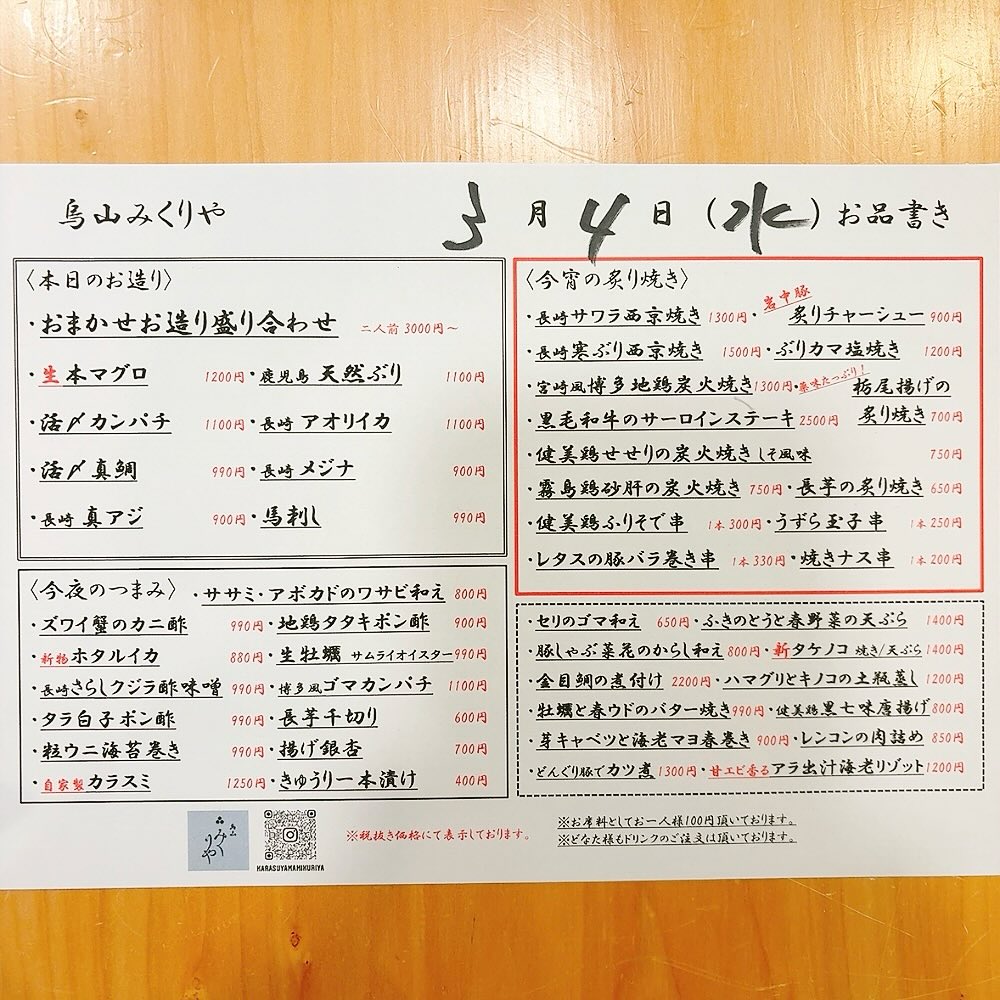 烏山みくりや 3月4日(水)お品書き
〈本日のお造り〉
・おまかせお造り盛り合わせ 二人前 3000円～
・生本マグロ 1200円・鹿児島 天然ぶり 1100円
・活〆カンパチ 1100円・長崎 アオリイカ 1100円
・活〆真鯛 990円・長崎 メジナ 900円
・長崎 真アジ 900円・馬刺し 990円
〈今夜のつまみ〉・ササミ・アボカドのワサビ和え 800円
・ズワイ蟹のカニ酢 990円・地鶏タタキポン酢 900円
・新物ホタルイカ 880円・生牡蠣 サムライオイスター990円
・長崎さらしクジラ酢味噌 990円・博多風ゴマカンパチ 1100円
・タラ白子ポン酢 990円・長芋千切り 600円
・粒ウニ海苔巻き 990円・揚げ銀杏 700円
・自家製カラスミ 1250円・きゅうり一本漬け 400円
〈今宵の炙り焼き〉
・長崎サワラ西京焼き 1300円・岩中豚 炙りチャーシュー 900円
・長崎寒ぶり西京焼き 1500円・ぶりカマ塩焼き 1200円
・宮崎風博多地鶏炭火焼き1300円・薬味たっぷり! 栃尾揚げの
・黒毛和牛のサーロインステーキ 2500円 炙り焼き 700円
・健美鶏せせりの炭火焼き しそ風味 750円
・霧島鶏砂肝の炭火焼き 750円・長芋の炙り焼き 650円
・健美鶏ふりそで串 1本 300円・うずら玉子串 1本 250円
・レタスの豚バラ巻き串 1本 330円・焼きナス串 1本 200円
・セリのゴマ和え 650円・ふきのとうと春野菜の天ぷら 1400円
・豚しゃぶ菜花のからし和え 800円・新タケノコ 焼き/天ぷら 1400円
・金目鯛の煮付け 2200円・ハマグリとキノコの土瓶蒸し 1200円
・牡蠣と春ウドのバター焼き990円・健美鶏黒七味唐揚げ800円
・芽キャベツと海老マヨ春巻き 900円・レンコンの肉詰め 850円
・どんぐり豚でカツ煮 1300円・甘エビ香るアラ出汁海老リゾット1200円
烏山
みくりや
KARASUYAMAMIKURIYA
※税抜き価格にて表示しております。
※お席料としてお一人様100円頂いております。
※どなた様もドリンクのご注文は頂いております。